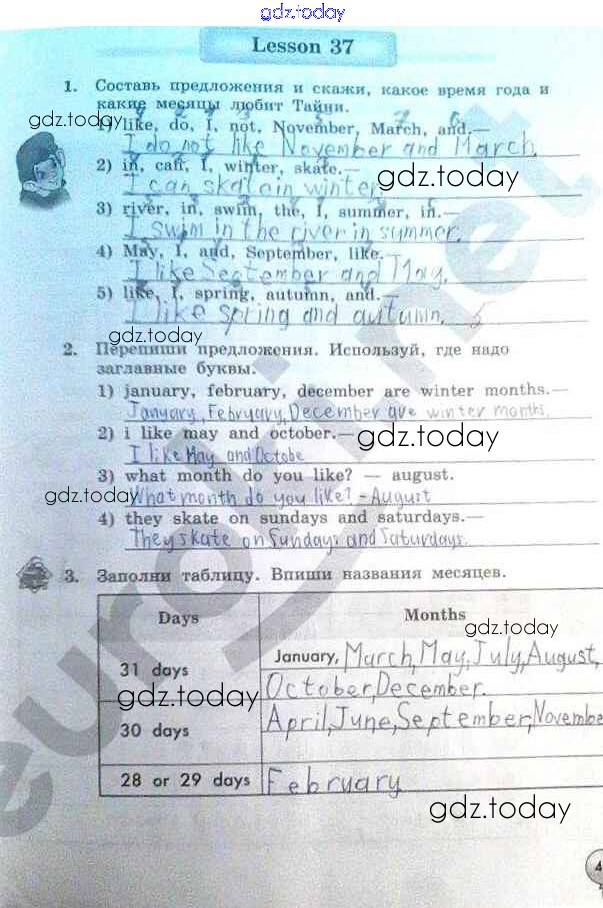 gdz.today
Lesson 37
1. Составь предложения и скажи, какое время года и
какие месяцы любит Тайни.
gdz.today
1) like, do, I, not, November, March, and.—
I do not like November and March.
2) in, can, I, winter, skate.—
gdz.today
I can skate in winter
3) river, in, swim, the, I, summer, in.—
I swim in the river in summer.
4) May, I, and, September, like.—
I like September and May.
5) like, I, spring, autumn, and.—
I like spring and autumn.
gdz.today
2. Перепиши предложения. Используй, где надо
заглавные буквы.
1) january, february, december are winter months.—
January, February, December are winter months.
2) i like may and october.—
gdz.today
I like May and Octobe
3) what month do you like? — august.
gdz.today
What month do you like? - August
4) they skate on sundays and saturdays.—
They skate on Sundays and Saturdays.
3. Заполни таблицу. Впиши названия месяцев.
Days Months
gdz.today
31 days January, March, May, July, August,
October, December.
gdz.today
30 days April, June, September, Novembe
28 or 29 days February
gdz.today
4
eurokinet